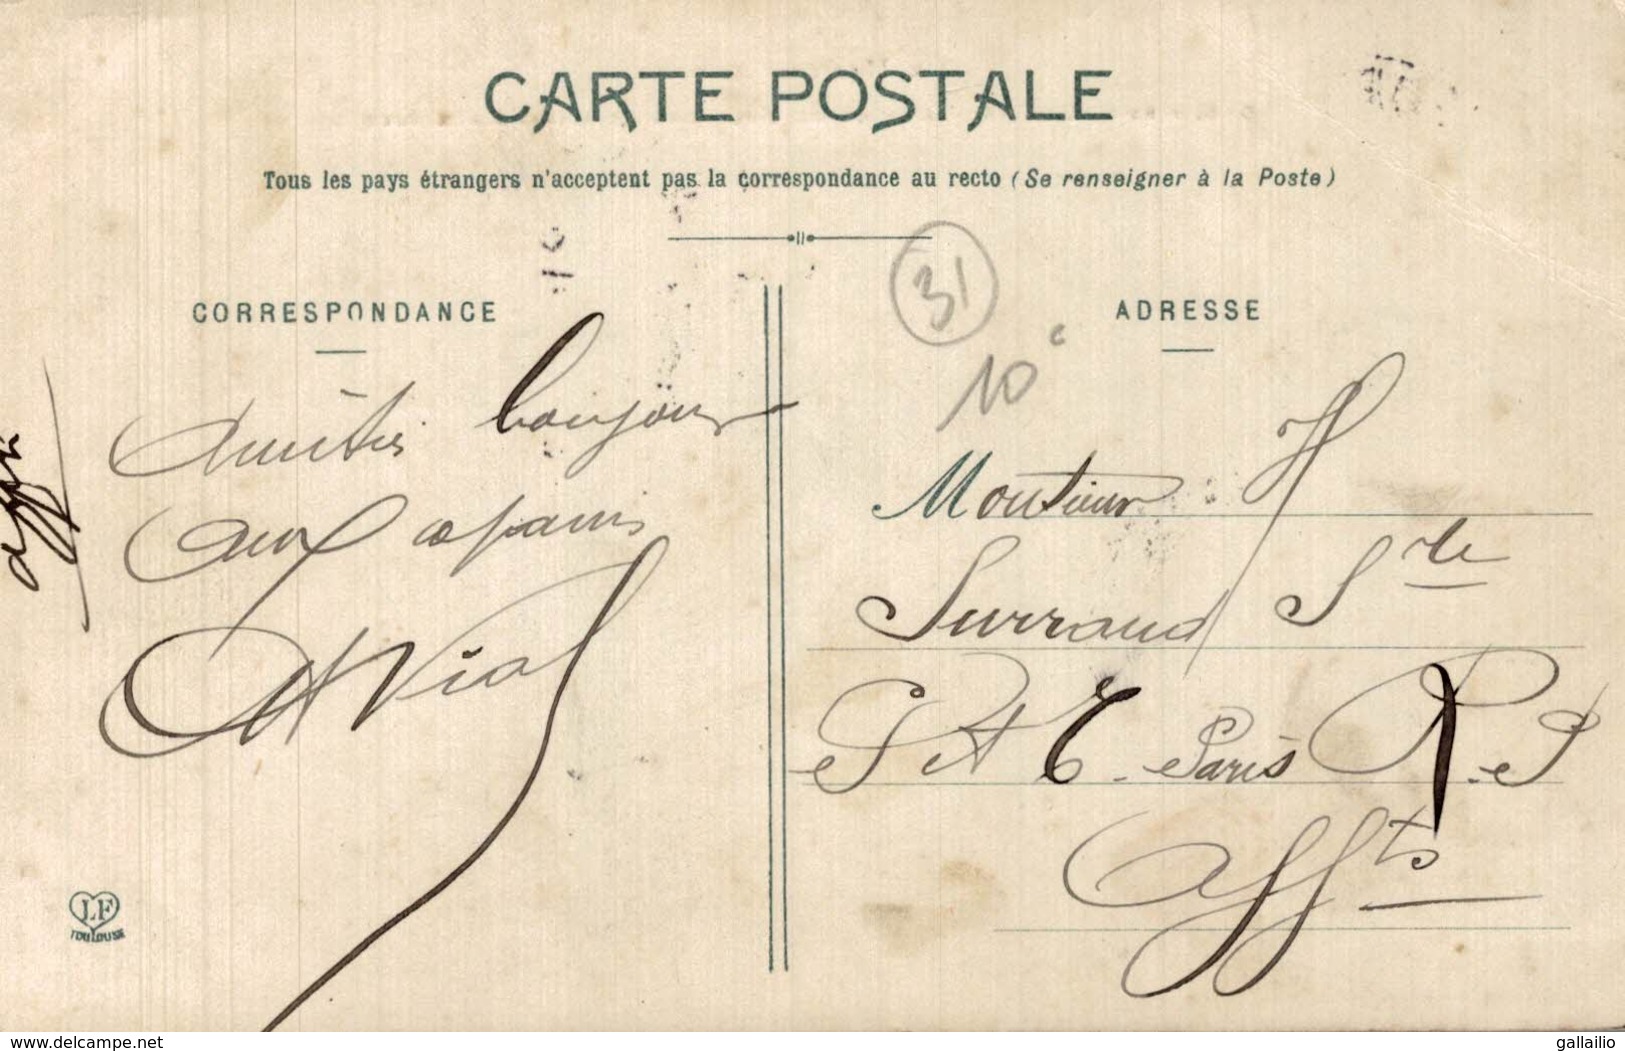 CARTE POSTALE
Tous les pays étrangers n'acceptent pas la correspondance au recto (Se renseigner à la Poste)
CORRESPONDANCE
ADRESSE
31
10 c
Amitiés bonjour
aux copains
A Vial
Monsieur
Surraud Ste
P et T. Paris R. P
Affts
LF
TOULOUSE
www.delcampe.net
gallailio